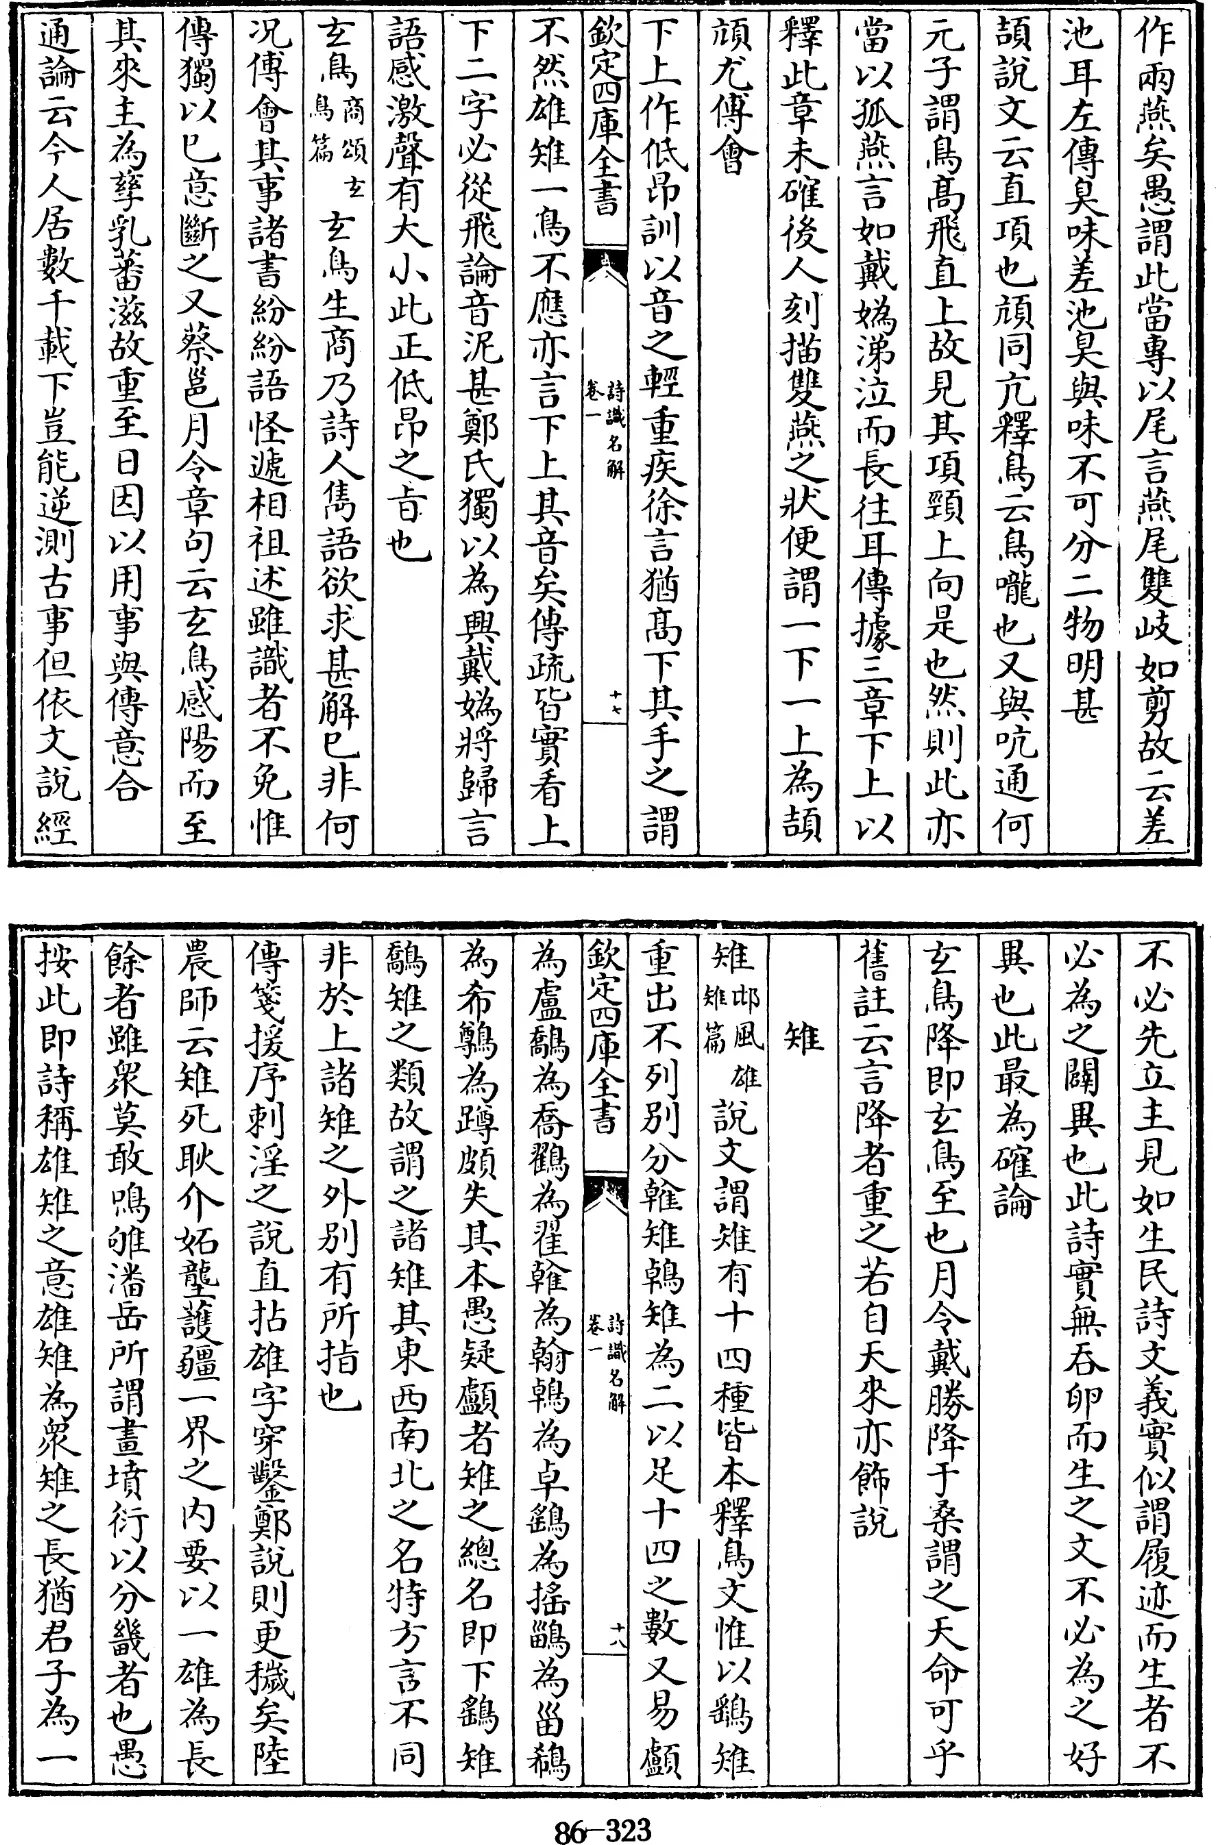 作兩燕矣愚謂此當專以尾言燕尾雙岐如剪故云差
池耳左傳臭味差池臭與味不可分二物明甚
頡說文云直項也頏同亢釋鳥云鳥嚨也又與吭通何
元子謂鳥髙飛直上故見其項頸上向是也然則此亦
當以孤燕言如戴媯涕泣而長往耳傳據三章下上以
釋此章未確後人刻描雙燕之狀便謂一下一上為頡
頏尤傅會
下上作低昂訓以音之輕重疾徐言猶髙下其手之謂
欽定四庫全書
詩識名解
卷一
十七
不然雄雉一鳥不應亦言下上其音矣傳疏皆實看上
下二字必從飛論音泥甚鄭氏獨以為興戴媯將歸言
語感激聲有大小此正低昂之旨也
玄鳥商頌玄鳥篇 玄鳥生商乃詩人雋語欲求甚解已非何
况傅會其事諸書紛紛語怪遞相祖述雖識者不免惟
傳獨以已意斷之又蔡邕月令章句云玄鳥感陽而至
其來主為孳乳蕃滋故重至日因以用事與傳意合
通論云今人居數千載下豈能逆測古事但依文說經
不必先立主見如生民詩文義實似謂履迹而生者不
必為之闢異也此詩實無吞卵而生之文不必為之好
異也此最為確論
玄鳥降即玄鳥至也月令戴勝降于桑謂之天命可乎
舊註云言降者重之若自天來亦飾說
雉
雉邶風雄雉篇 說文謂雉有十四種皆本釋鳥文惟以鷂雉
重出不列别分雗雉鵫雉為二以足十四之數又易鸕
欽定四庫全書
詩識名解
卷一
十八
為盧鷮為喬鸐為翟雗為翰鵫為卓鷂為搖鶅為甾鵗
為希鷷為蹲頗失其本愚疑鸕者雉之總名即下鷂雉
鷮雉之類故謂之諸雉其東西南北之名特方言不同
非於上諸雉之外别有所指也
傳箋援序刺淫之說直拈雄字穿鑿鄭說則更穢矣陸
農師云雉死耿介妬壟護疆一界之内要以一雄為長
餘者雖衆莫敢鳴雊潘岳所謂畫墳衍以分畿者也愚
按此即詩稱雄雉之意雄雉為衆雉之長猶君子為一
86-323